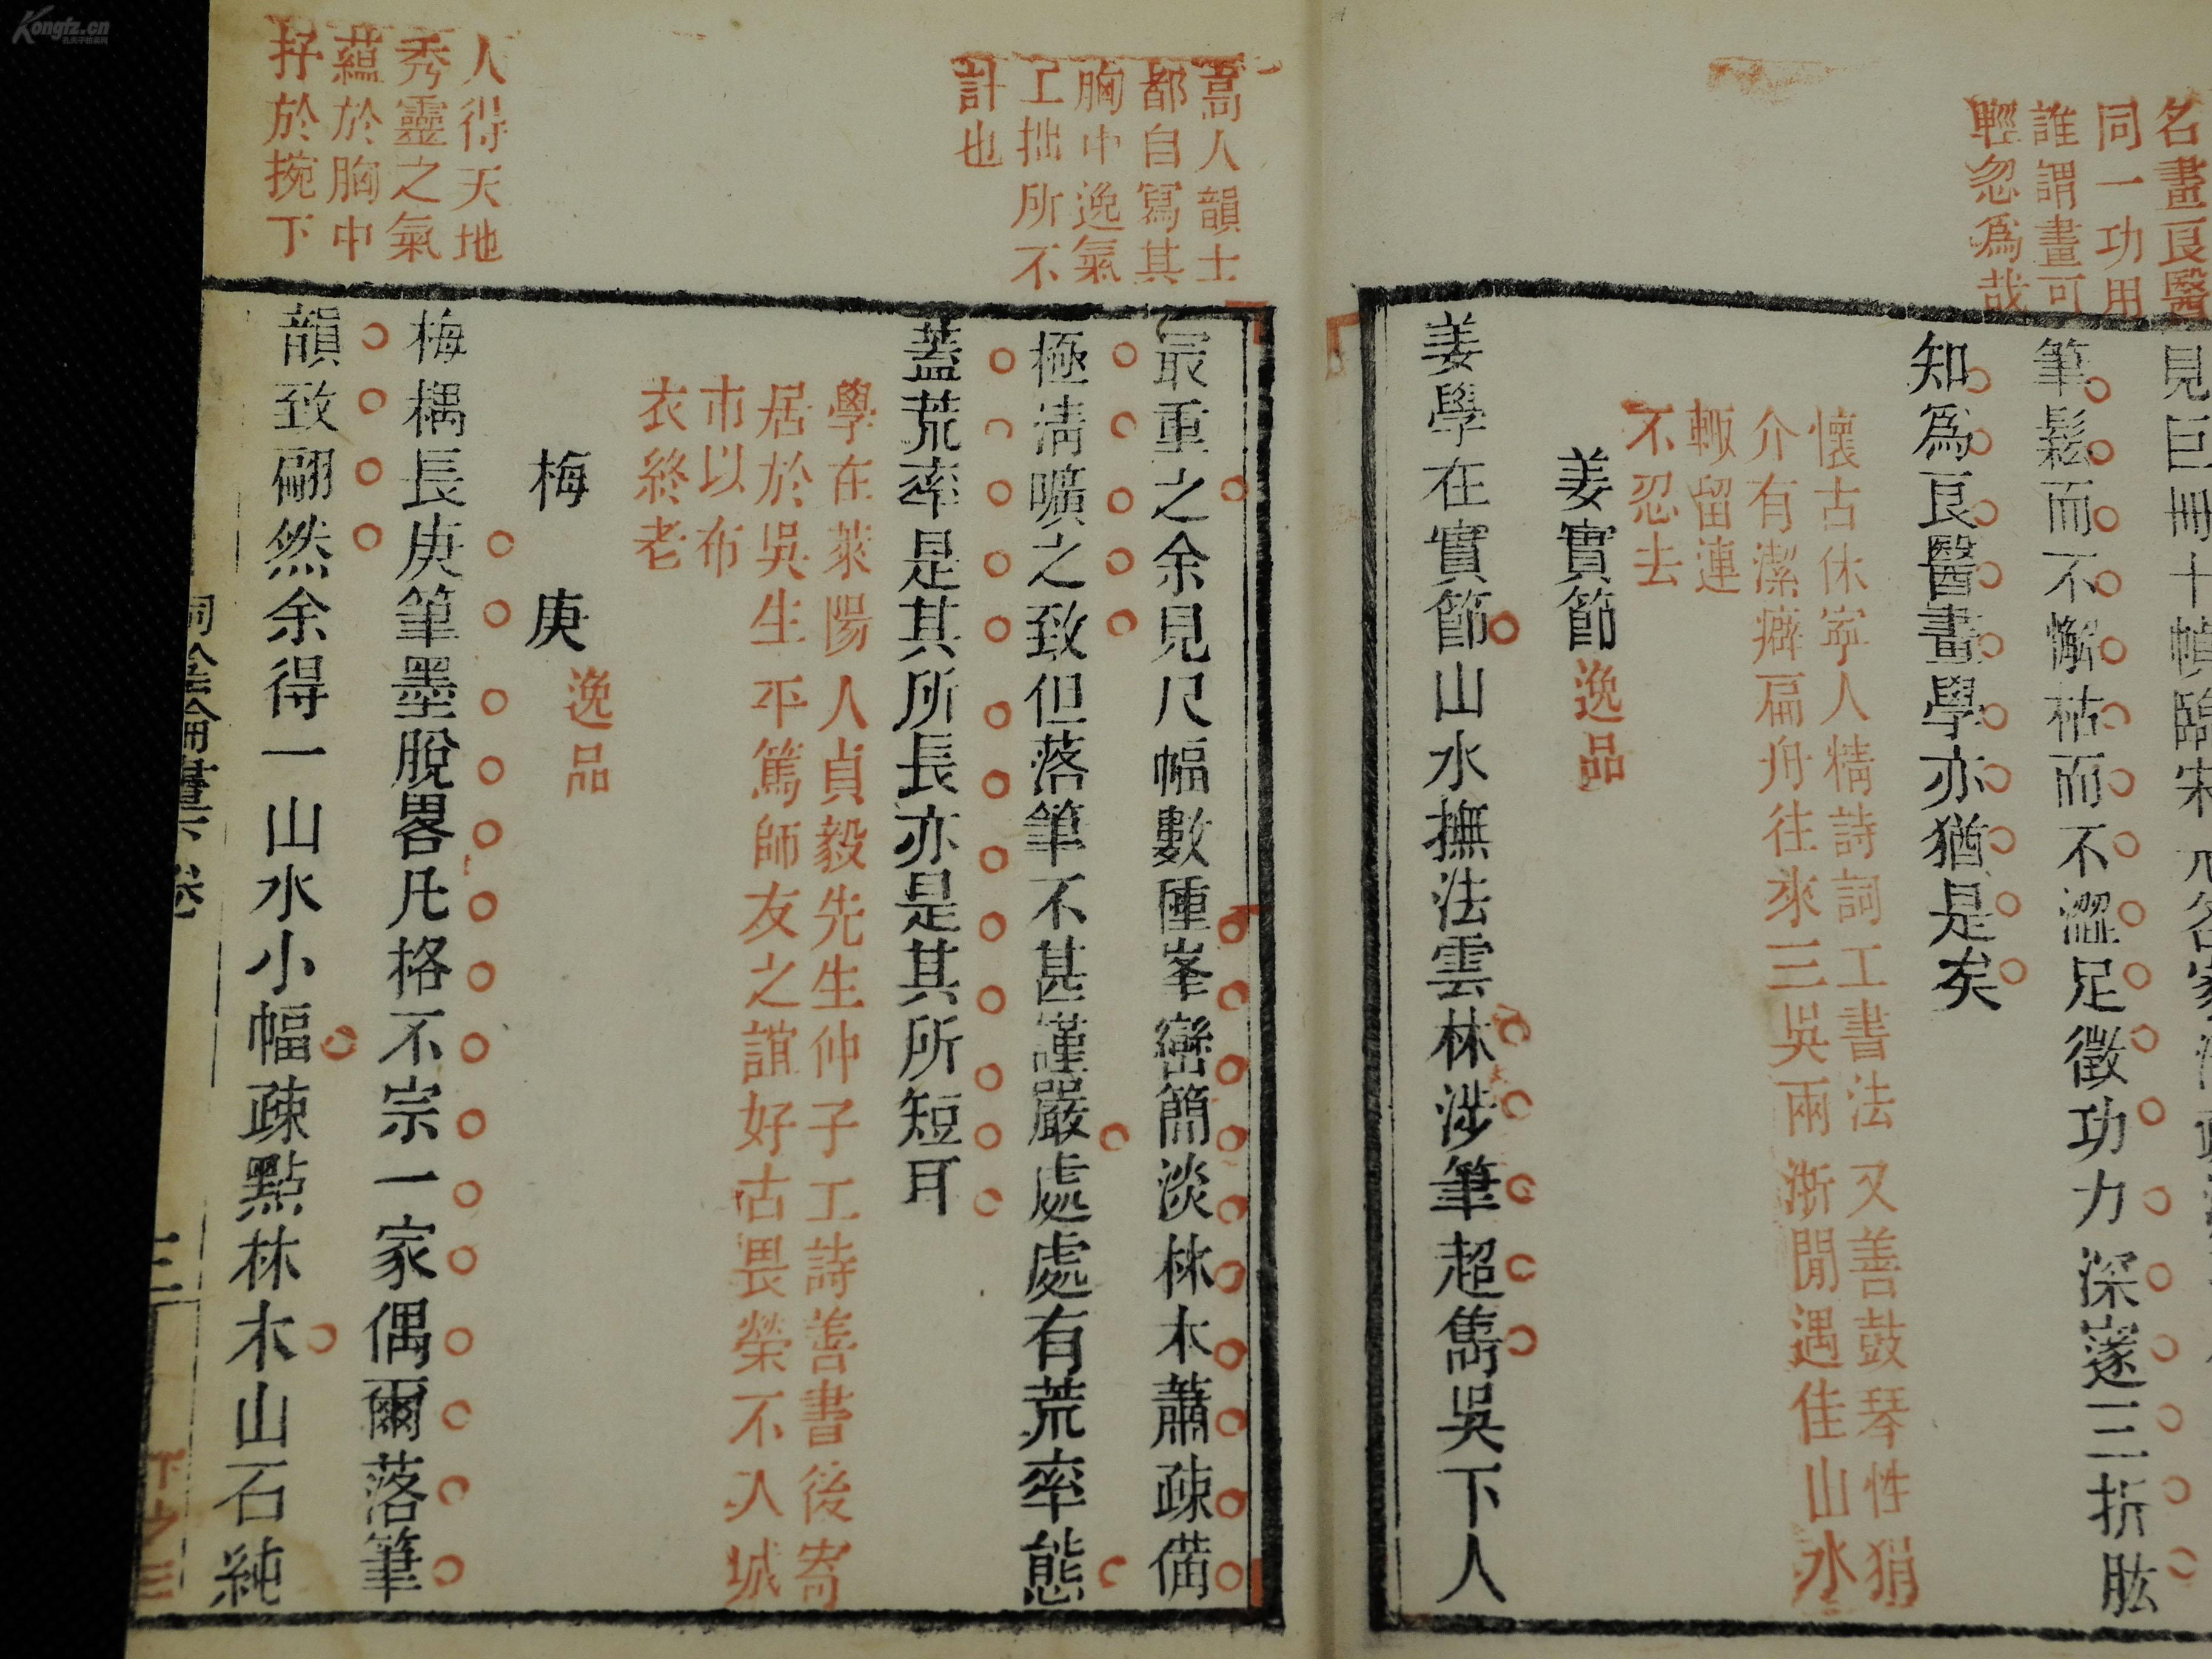 名畫良醫
同一功用
誰謂畫可
輕忽爲哉
筆鬆而不懈枯而不澀足徵功力深邃三折肱
知爲良醫畫學亦猶是矣
懷古休寧人精詩詞工書法又善鼓琴性狷
介有潔癖扁舟往來三吳兩浙閒遇佳山水
輙留連
不忍去
姜實節逸品
姜學在實節山水撫法雲林涉筆超雋吳下人
高人韻士
都自寫其
胸中逸氣
工拙所不
計也
最重之余見尺幅數種峯巒簡淡林木蕭疎備
極淸曠之致但落筆不甚謹嚴處處有荒率態
蓋荒率是其所長亦是其所短耳
學在萊陽人貞毅先生仲子工詩善書後寄
居於吳生平篤師友之誼好古畏榮不入城
市以布
衣終老
梅庚逸品
人得天地
秀靈之氣
蘊於胸中
抒於捥下
梅耦長庚筆墨脫畧凡格不宗一家偶爾落筆
韻致翩然余得一山水小幅疎點林木山石純
三
下之三
Kongfz.cn